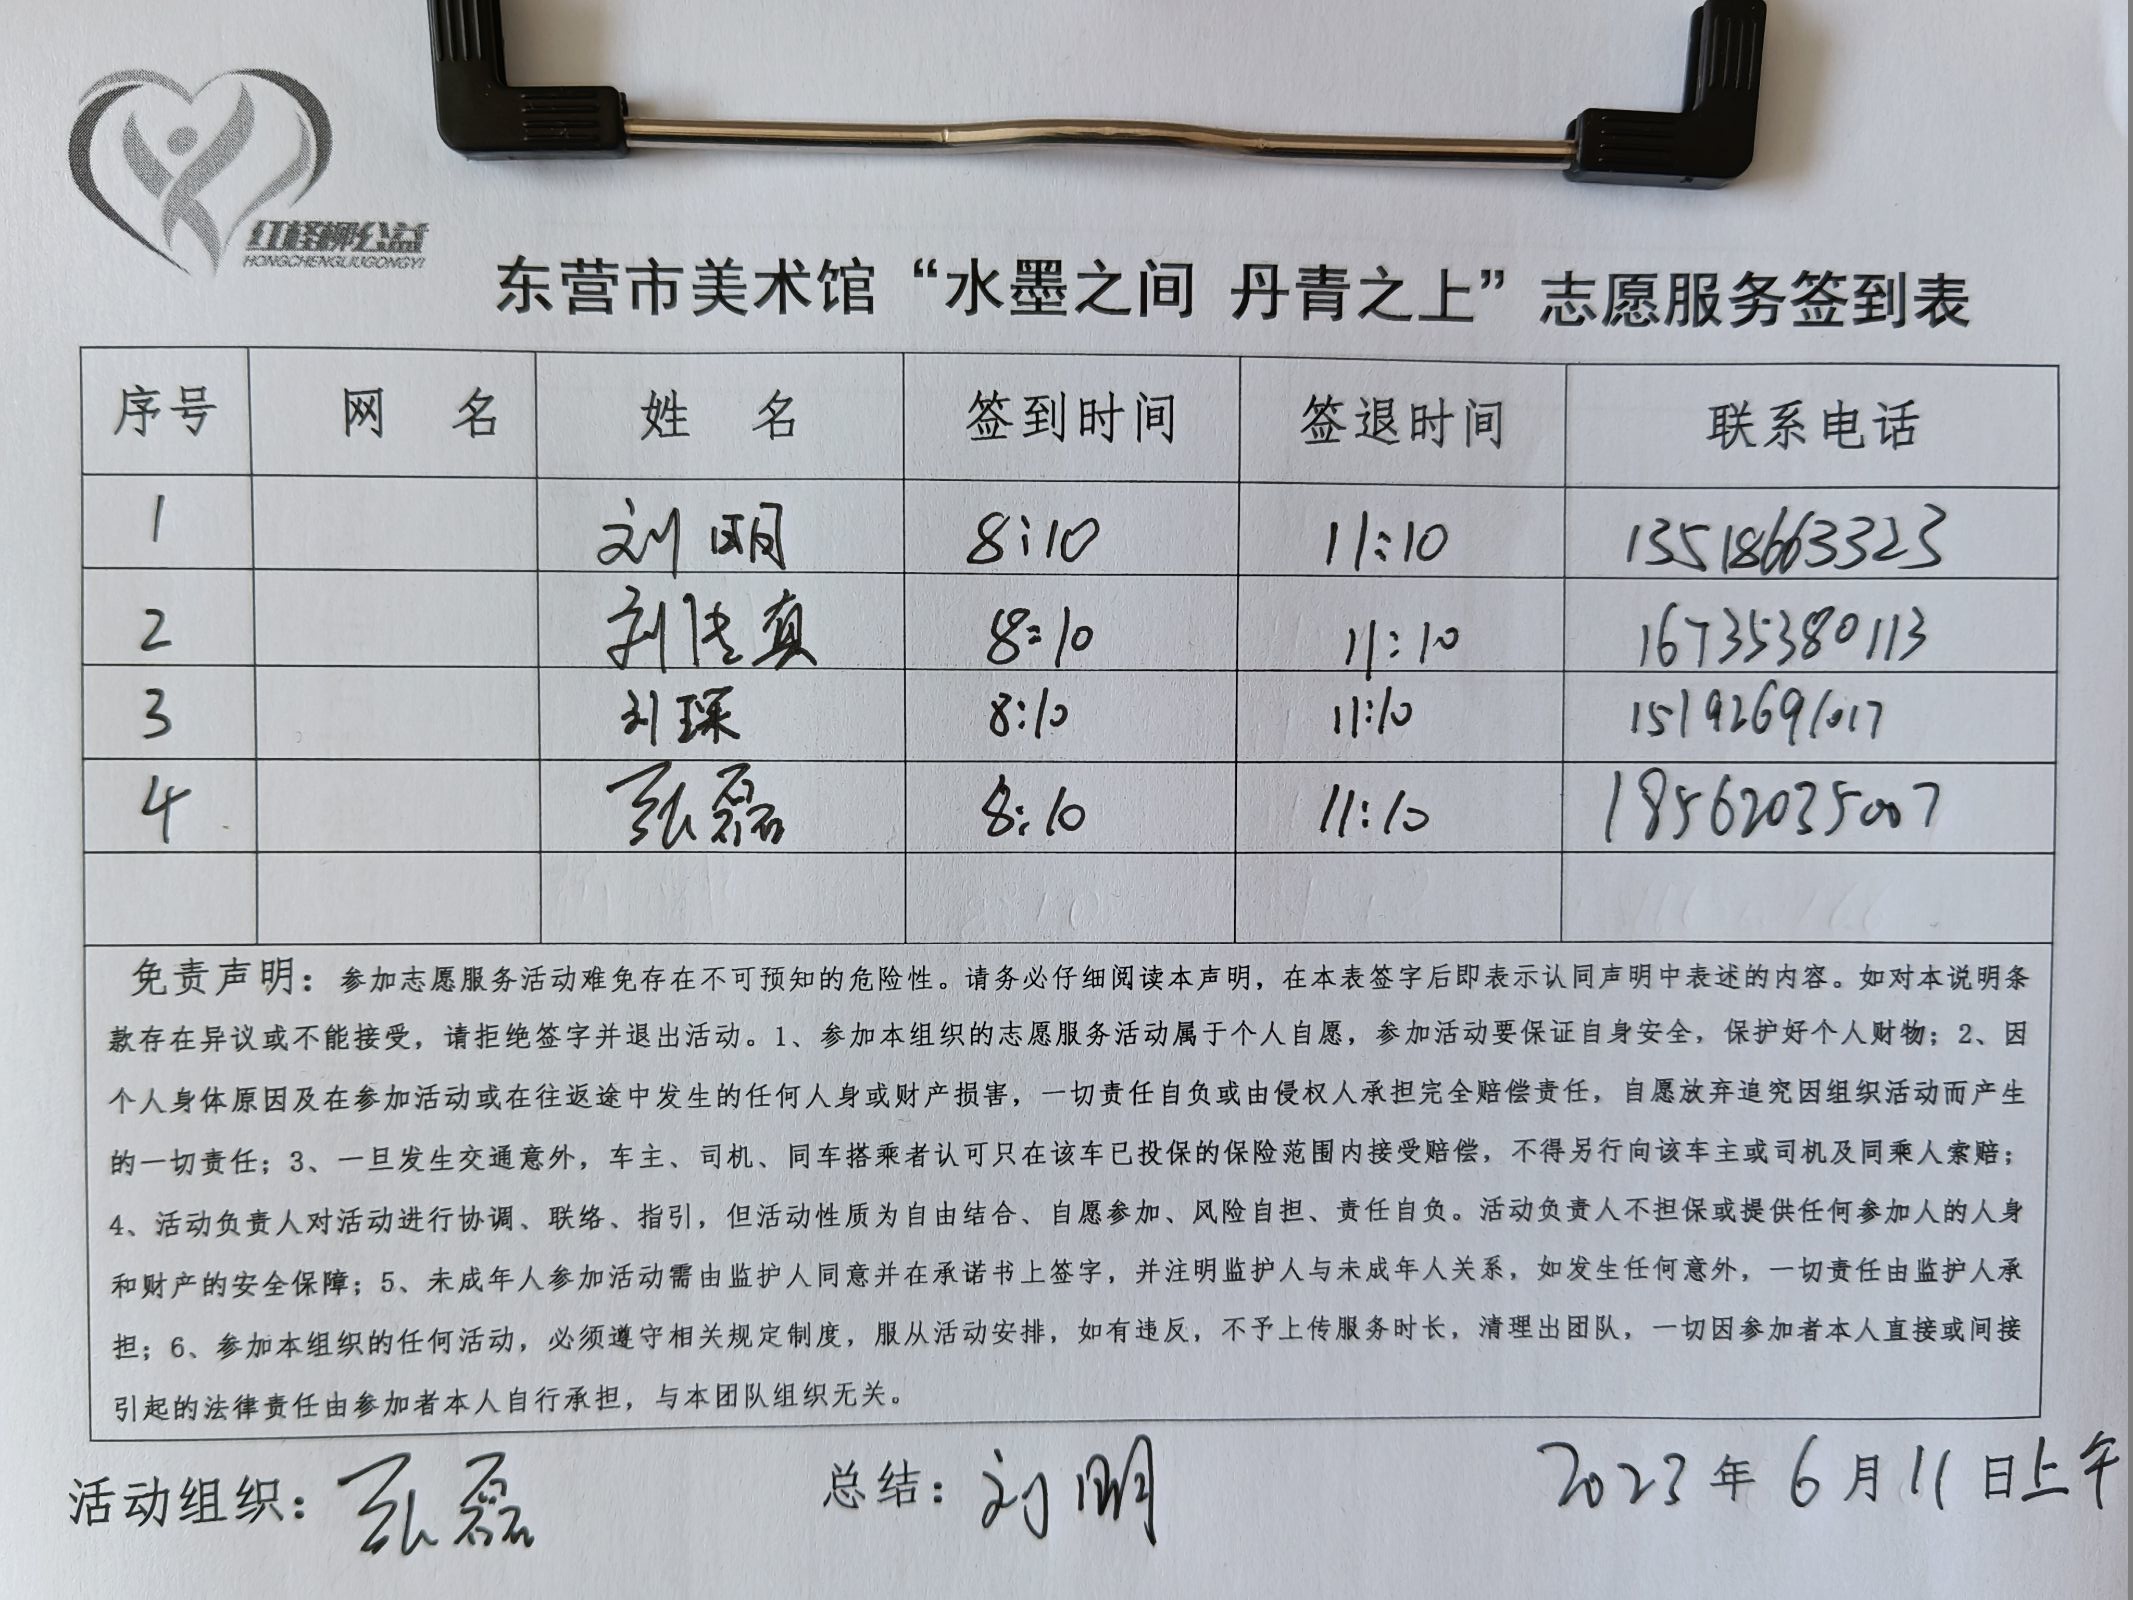 红柽柳公益
HONGCHENGLIUGONGYI
东营市美术馆“水墨之间 丹青之上”志愿服务签到表
序号 网 名 姓 名 签到时间 签退时间 联系电话
1 刘明 8:10 11:10 13518663323
2 刘传真 8:10 11:10 16735380113
3 刘琛 8:10 11:10 15192691017
4 张磊 8:10 11:10 18562035007
免责声明：参加志愿服务活动难免存在不可预知的危险性。请务必仔细阅读本声明，在本表签字后即表示认同声明中表述的内容。如对本说明条
款存在异议或不能接受，请拒绝签字并退出活动。1、参加本组织的志愿服务活动属于个人自愿，参加活动要保证自身安全，保护好个人财物；2、因
个人身体原因及在参加活动或在往返途中发生的任何人身或财产损害，一切责任自负或由侵权人承担完全赔偿责任，自愿放弃追究因组织活动而产生
的一切责任；3、一旦发生交通意外，车主、司机、同车搭乘者认可只在该车已投保的保险范围内接受赔偿，不得另行向该车主或司机及同乘人索赔；
4、活动负责人对活动进行协调、联络、指引，但活动性质为自由结合、自愿参加、风险自担、责任自负。活动负责人不担保或提供任何参加人的人身
和财产的安全保障；5、未成年人参加活动需由监护人同意并在承诺书上签字，并注明监护人与未成年人关系，如发生任何意外，一切责任由监护人承
担；6、参加本组织的任何活动，必须遵守相关规定制度，服从活动安排，如有违反，不予上传服务时长，清理出团队，一切因参加者本人直接或间接
引起的法律责任由参加者本人自行承担，与本团队组织无关。
活动组织：张磊 总结：刘明 2023年6月11日上午